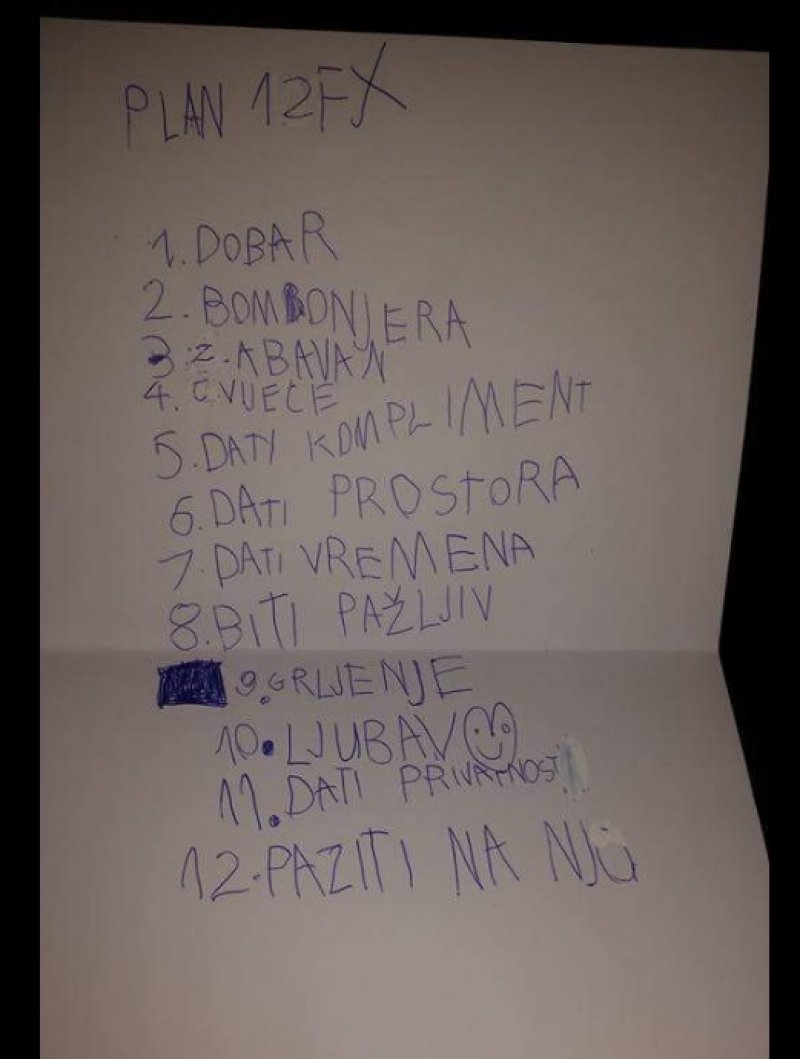 PLAN 12FX
1. DOBAR
2. BOMBONJERA
3. ZABAVAN
4. CVIJEĆE
5. DATI KOMPLIMENT
6. DATI PROSTORA
7. DATI VREMENA
8. BITI PAŽLJIV
9. GRLJENJE
10. LJUBAV
11. DATI PRIVATNOST
12. PAZITI NA NJU